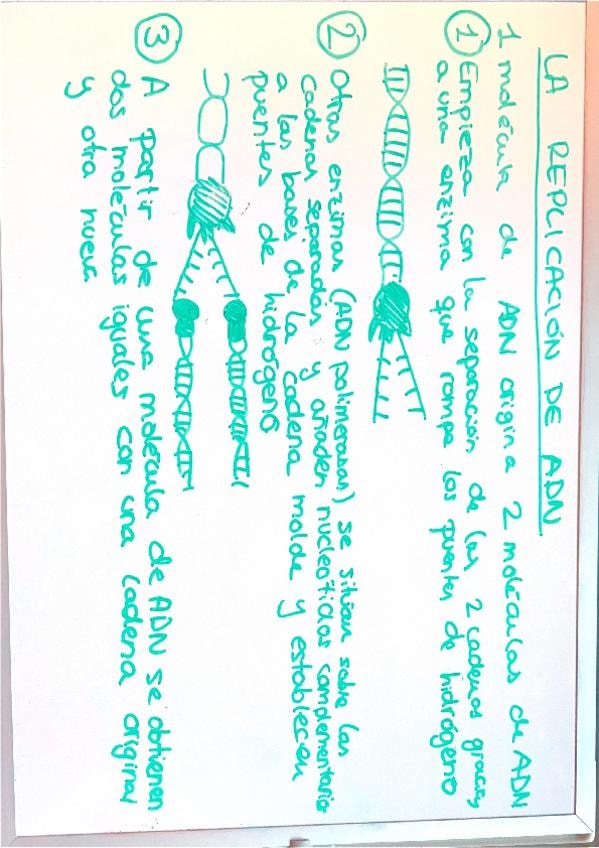 LA REPLICACIÓN DE ADN
1 molécula de ADN origina 2 moléculas de ADN
① Empieza con la separación de las 2 cadenas gracias
a una enzima que rompe los puentes de hidrógeno
② Otras enzimas (ADN polimerasas) se sitúan sobre las
cadenas separadas y añaden nucleótidos complementarios
a las bases de la cadena molde y establecen
puentes de hidrógeno
③ A partir de una molécula de ADN se obtienen
dos moléculas iguales con una cadena original
y otra nueva